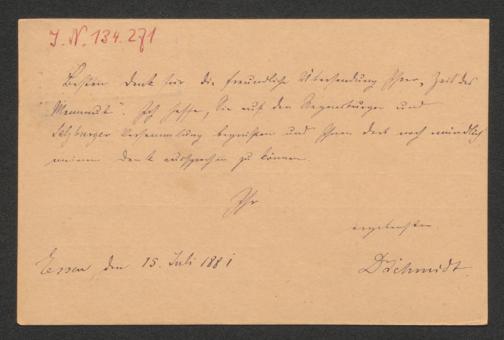 J. N. 134.271
Besten Dank für die freundliche Übersendung Ihrer, Zeit des
Mammut". Ich hoffe, Sie auf den Regensburger und
Salzburger Versammlung begrüßen und Ihnen dort noch mündlich
meinen Dank aussprechen zu können
Ihr
ergebenster
DSchmidt.
Essen, den 15. Juli 1881